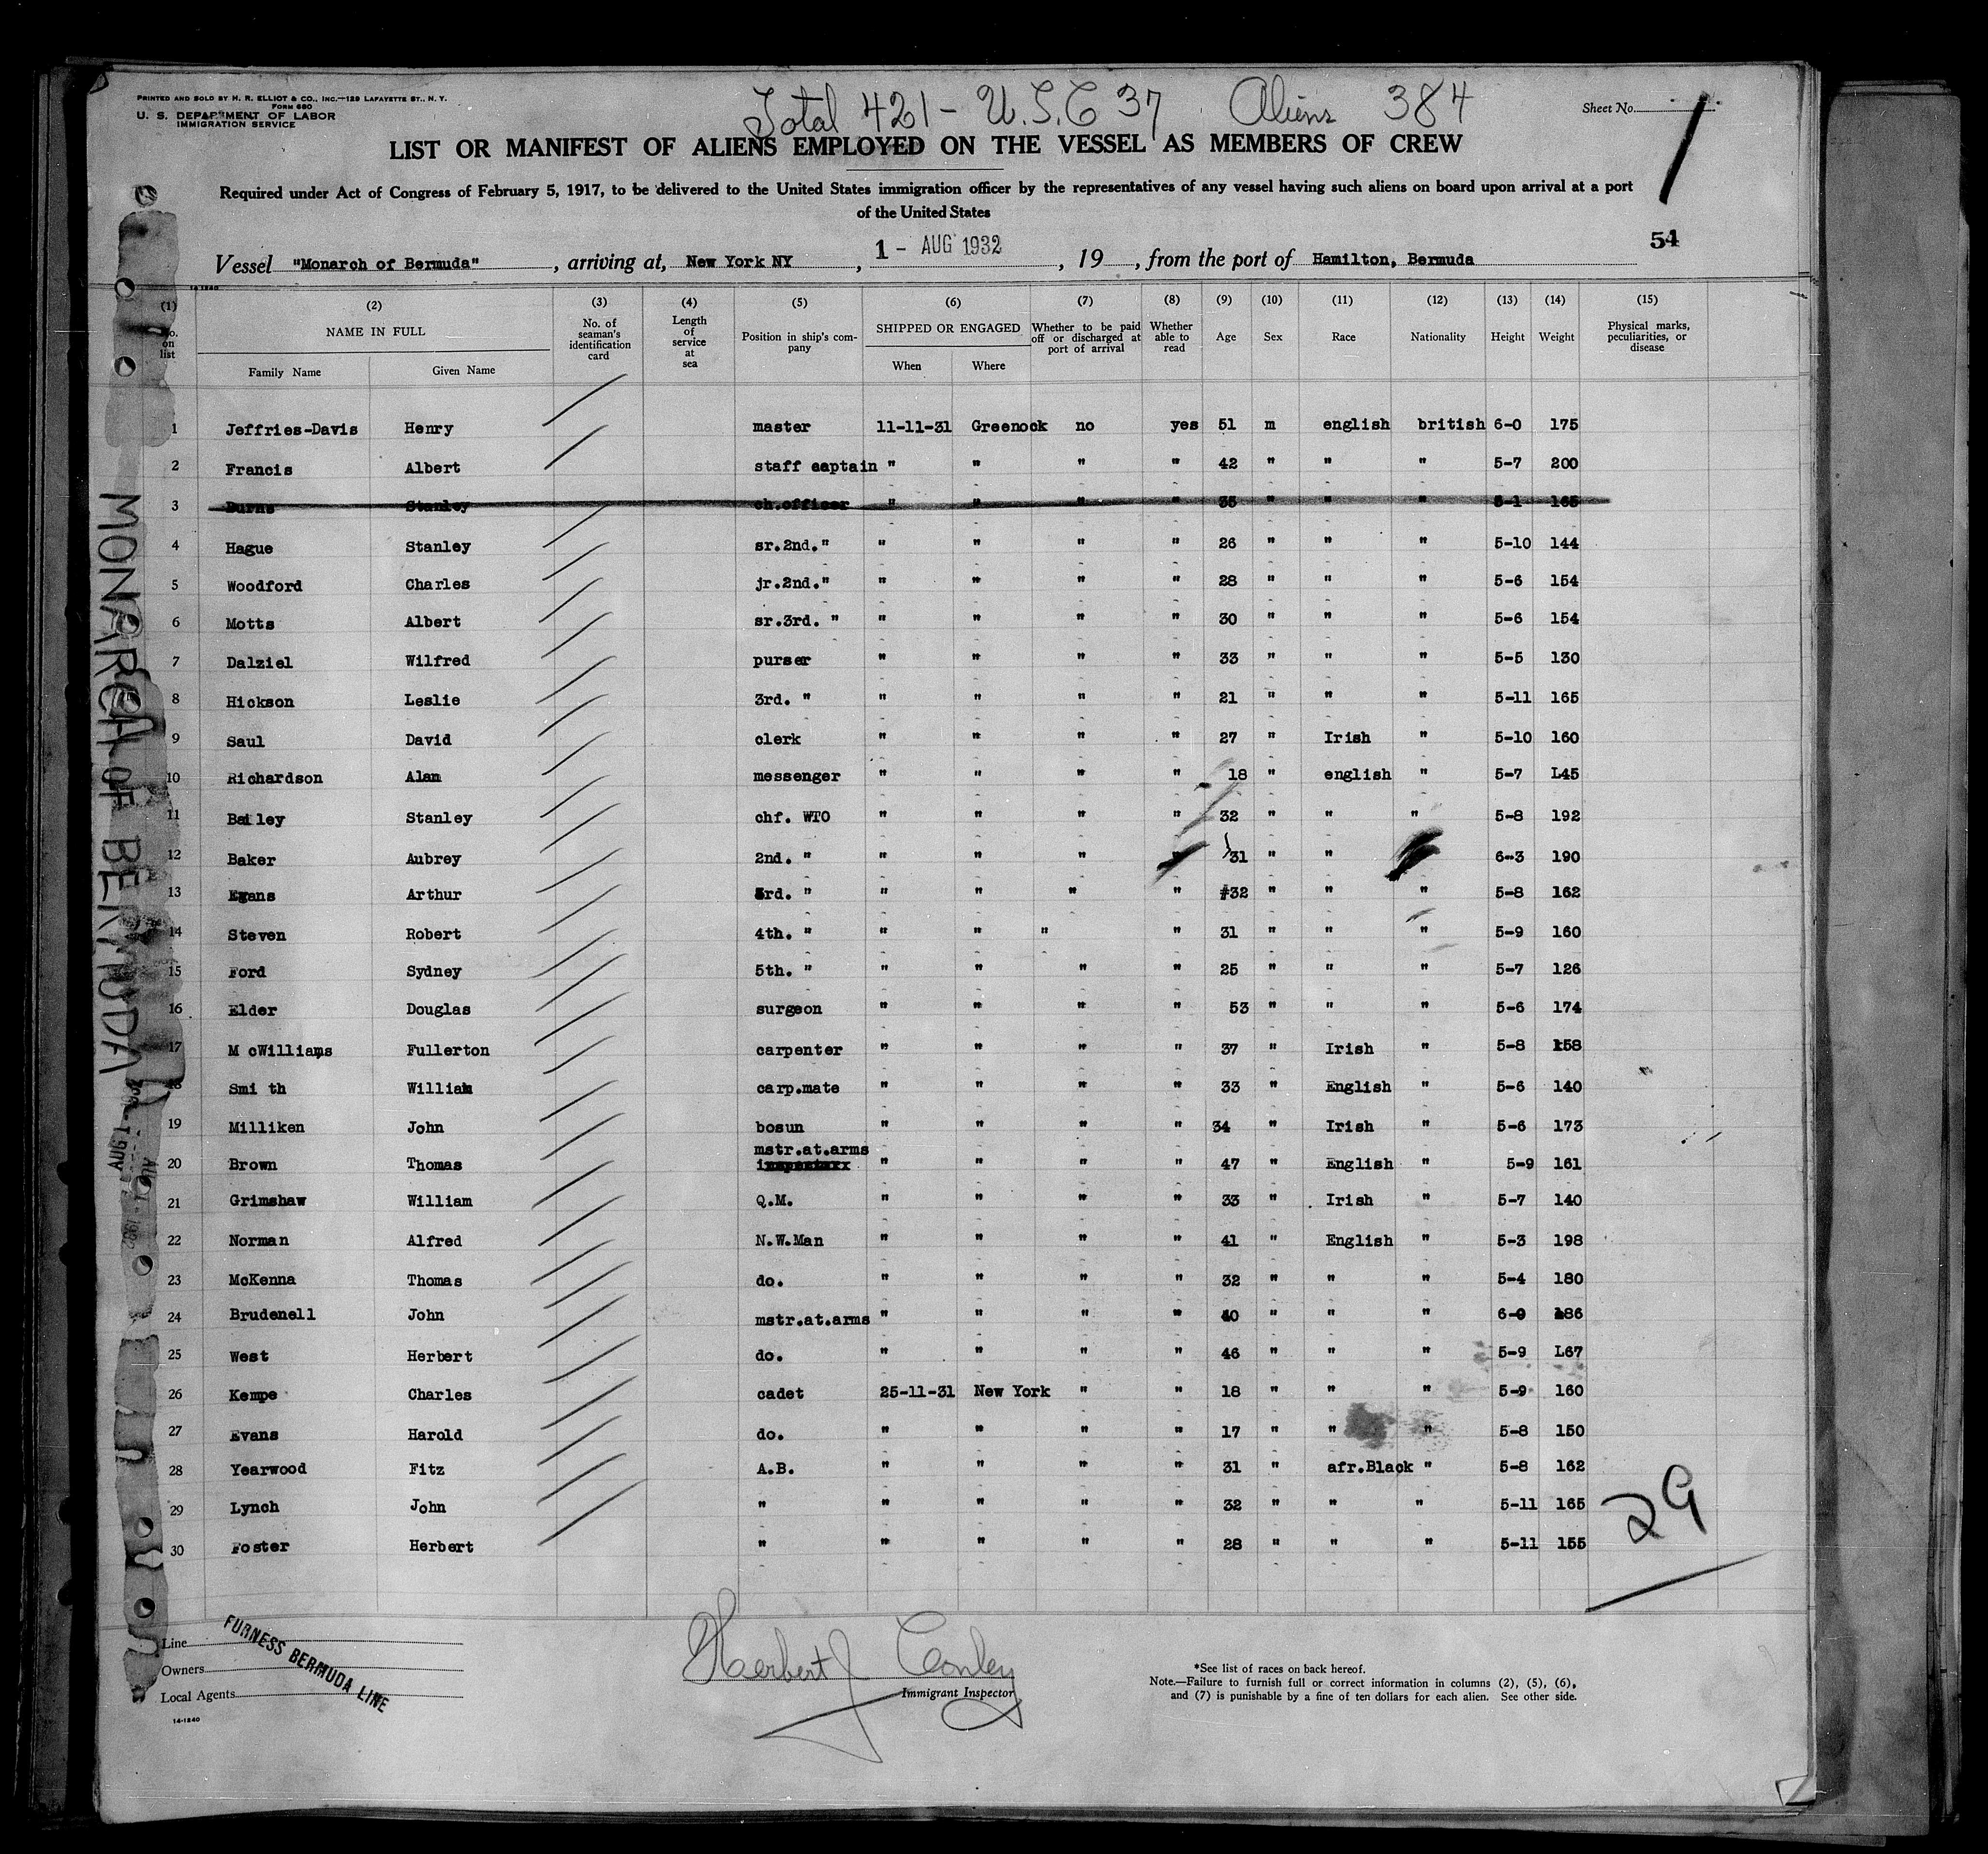 PRINTED AND SOLD BY H. R. ELLIOT & CO., INC.—129 LAFAYETTE ST., N. Y.
FORM 680
U. S. DEPARTMENT OF LABOR
IMMIGRATION SERVICE
Total 421 - U.S.C 37 Aliens 384
Sheet No. 1
LIST OR MANIFEST OF ALIENS EMPLOYED ON THE VESSEL AS MEMBERS OF CREW
Required under Act of Congress of February 5, 1917, to be delivered to the United States immigration officer by the representatives of any vessel having such aliens on board upon arrival at a port
of the United States
54
Vessel "Monarch of Bermuda", arriving at, New York NY, 1 - AUG 1932, 19, from the port of Hamilton, Bermuda
14-1240
(1) No. on list (2) NAME IN FULL Family Name Given Name (3) No. of seaman's identification card (4) Length of service at sea (5) Position in ship's company (6) SHIPPED OR ENGAGED When Where (7) Whether to be paid off or discharged at port of arrival (8) Whether able to read (9) Age (10) Sex (11) Race (12) Nationality (13) Height (14) Weight (15) Physical marks, peculiarities, or disease
1 Jeffries-Davis Henry master 11-11-31 Greenock no yes 51 m english british 6-0 175
2 Francis Albert staff captain " " " " 42 " " " 5-7 200
3 Burns Stanley ch.officer " " " " 35 " " " 5-1 165
4 Hague Stanley sr.2nd." " " " " 26 " " " 5-10 144
5 Woodford Charles jr.2nd." " " " " 28 " " " 5-6 154
6 Motts Albert sr.3rd. " " " " " 30 " " " 5-6 154
7 Dalziel Wilfred purser " " " " 33 " " " 5-5 130
8 Hickson Leslie 3rd. " " " " " 21 " " " 5-11 165
9 Saul David clerk " " " " 27 " Irish " 5-10 160
10 Richardson Alan messenger " " " " 18 " english " 5-7 L45
11 Bailey Stanley chf. WTO " " " " 32 " " " 5-8 192
12 Baker Aubrey 2nd. " " " " " 31 " " 6-3 190
13 Evans Arthur 3rd. " " " " " 32 " " " 5-8 162
14 Steven Robert 4th. " " " " " 31 " " " 5-9 160
15 Ford Sydney 5th. " " " " " 25 " " " 5-7 126
16 Elder Douglas surgeon " " " " 53 " " " 5-6 174
17 M cWilliams Fullerton carpenter " " " " 37 " Irish " 5-8 158
18 Smi th William carp.mate " " " " 33 " English " 5-6 140
19 Milliken John bosun " " " " 34 " Irish " 5-6 173
20 Brown Thomas mstr.at.arms " " " " 47 " English " 5-9 161
21 Grimshaw William Q.M. " " " " 33 " Irish " 5-7 140
22 Norman Alfred N.W.Man " " " " 41 " English " 5-3 198
23 McKenna Thomas do. " " " " 32 " " " 5-4 180
24 Brudenell John mstr.at.arms " " " " 40 " " " 6-0 186
25 West Herbert do. " " " " 46 " " " 5-9 L67
26 Kempe Charles cadet 25-11-31 New York " " 18 " " " 5-9 160
27 Evans Harold do. " " " " 17 " " " 5-8 150
28 Yearwood Fitz A.B. " " " " 31 " afr.Black " 5-8 162
29 Lynch John " " " " " 32 " " " 5-11 165
30 Foster Herbert " " " " " 28 " " " 5-11 155
29
MONARCH OF BERMUDA
Line
Owners
Local Agents
FURNESS BERMUDA LINE
14-1240
Herbert J Conley
Immigrant Inspector
*See list of races on back hereof.
Note.—Failure to furnish full or correct information in columns (2), (5), (6),
and (7) is punishable by a fine of ten dollars for each alien. See other side.